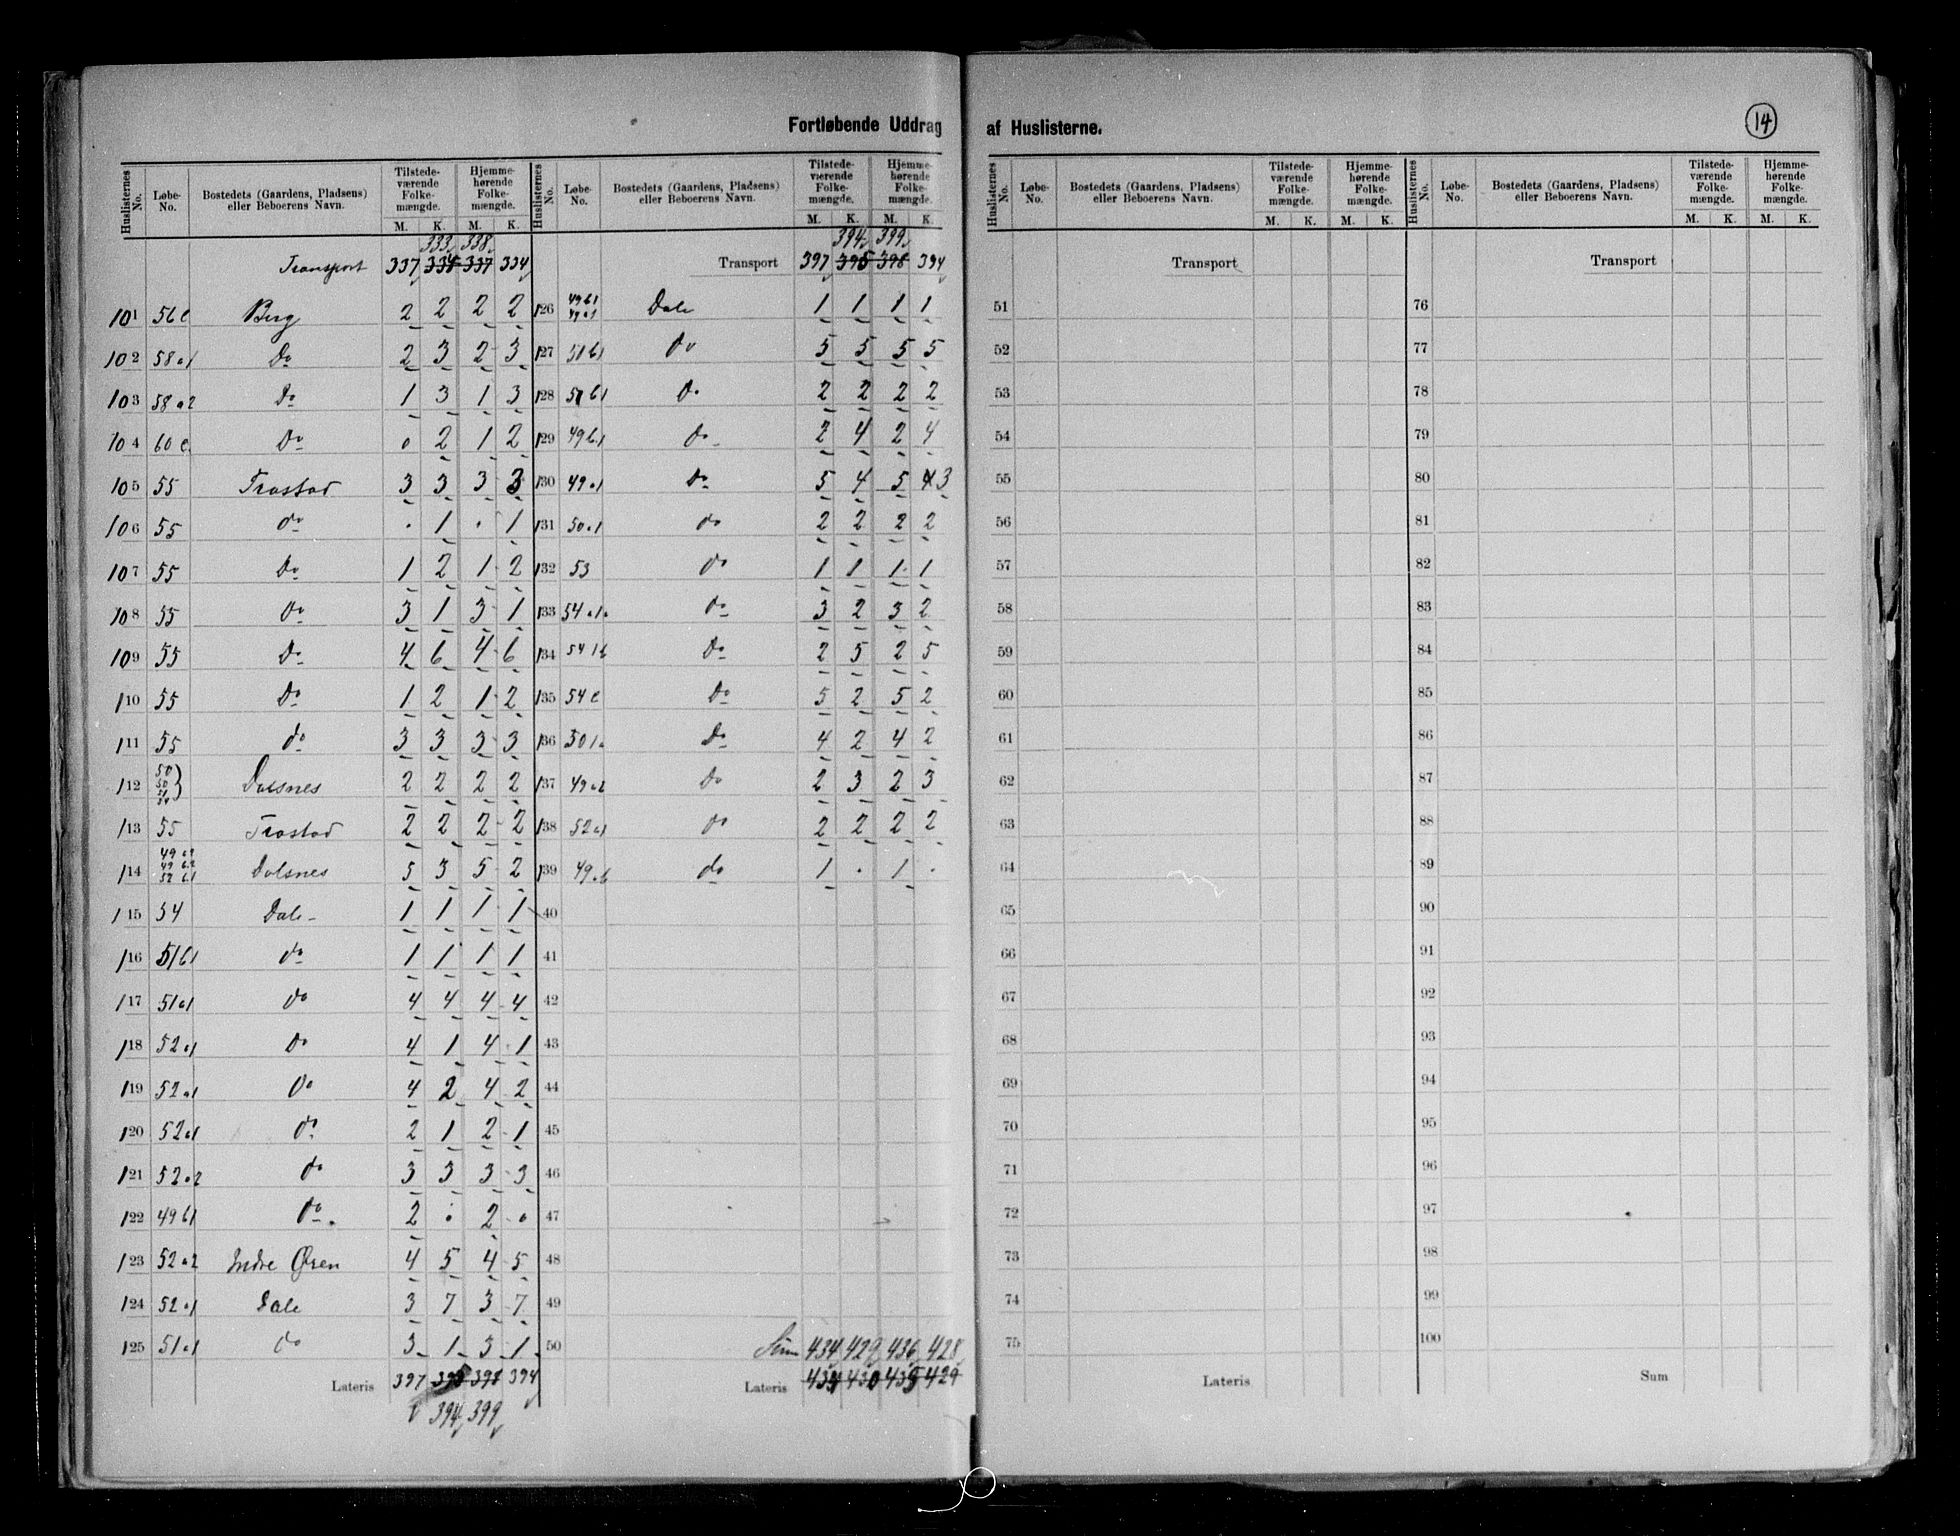 Fortløbende Uddrag af Huslisterne.
14
Huslisternes No. | Løbe-No. | Bostedets (Gaardens, Pladsens) eller Beboerens Navn. | Tilstedeværende Folkemængde. M. K. | Hjemmehørende Folkemængde. M. K.
333 338
Transport 337 334 337 334
101 56 c Berg 2 2 2 2
102 58 a1 Do 2 3 2 3
103 58 a2 Do 1 3 1 3
104 60 c. Do 0 2 1 2
105 55 Trostad 3 3 3 3
106 55 do . 1 . 1
107 55 Do 1 2 1 2
108 55 Do 3 1 3 1
109 55 Do 4 6 4 6
110 55 Do 1 2 1 2
111 55 do 3 3 3 3
112 50 50 51 54 } Dalsnes 2 2 2 2
113 55 Trostad 2 2 2 2
114 49 49 52 b.1 Dalsnes 5 3 5 2
115 54 Dale 1 1 1 1
116 51 b1 do 1 1 1 1
117 51 a1 do 4 4 4 4
118 52 a1 do 4 1 4 1
119 52 a1 do 4 2 4 2
120 52 a1 do 2 1 2 1
121 52 a2 do 3 3 3 3
122 49 b1 do 2 . 2 .
123 52 a2 Indre Øren 4 5 4 5
124 52 a1 Dale 3 7 3 7
125 51 a1 do 3 1 3 1
Lateris 397 395 398 394
394 399
Huslisternes No. | Løbe-No. | Bostedets (Gaardens, Pladsens) eller Beboerens Navn. | Tilstedeværende Folkemængde. M. K. | Hjemmehørende Folkemængde. M. K.
394 399
Transport 397 395 398 394
126 49 b1 49 a1 Dale 1 1 1 1
127 51 b1 do 5 5 5 5
128 51 b1 do 2 2 2 2
129 49 b.1 Do 2 4 2 4
130 49 a1 Do 5 4 5 4 3
131 50 a1 do 2 2 2 2
132 53 do 1 1 1 1
133 54 a1. do 3 2 3 2
134 54 1b Do 2 5 2 5
135 54 c Do 5 2 5 2
136 50 1a Do 4 2 4 2
137 49 a2 Do 2 3 2 3
138 52 a1 do 2 2 2 2
139 49 b do 1 . 1 .
40
41
42
43
44
45
46
47
48
49
50 Sum 434 429 436 428
Lateris 434 430 435 429
Huslisternes No. | Løbe-No. | Bostedets (Gaardens, Pladsens) eller Beboerens Navn. | Tilstedeværende Folkemængde. M. K. | Hjemmehørende Folkemængde. M. K.
Transport
51
52
53
54
55
56
57
58
59
60
61
62
63
64
65
66
67
68
69
70
71
72
73
74
75
Lateris
Huslisternes No. | Løbe-No. | Bostedets (Gaardens, Pladsens) eller Beboerens Navn. | Tilstedeværende Folkemængde. M. K. | Hjemmehørende Folkemængde. M. K.
Transport
76
77
78
79
80
81
82
83
84
85
86
87
88
89
90
91
92
93
94
95
96
97
98
99
100
Sum